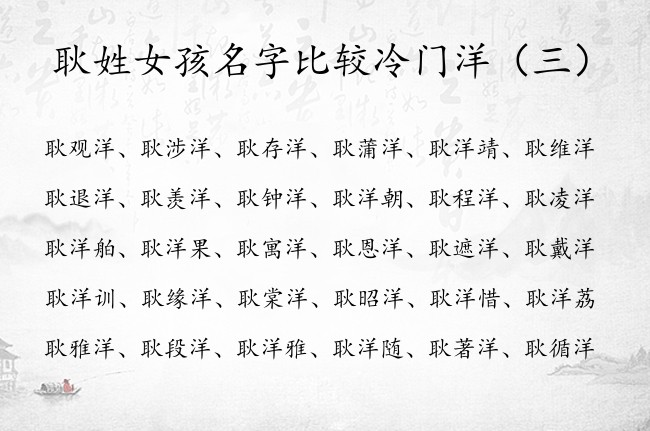 耿姓女孩名字比较冷门洋（三）
耿观洋、耿涉洋、耿存洋、耿蒲洋、耿洋靖、耿维洋
耿退洋、耿羡洋、耿钟洋、耿洋朝、耿程洋、耿凌洋
耿洋舶、耿洋果、耿寓洋、耿恩洋、耿遮洋、耿戴洋
耿洋训、耿缘洋、耿棠洋、耿昭洋、耿洋惜、耿洋荔
耿雅洋、耿段洋、耿洋雅、耿洋随、耿著洋、耿循洋